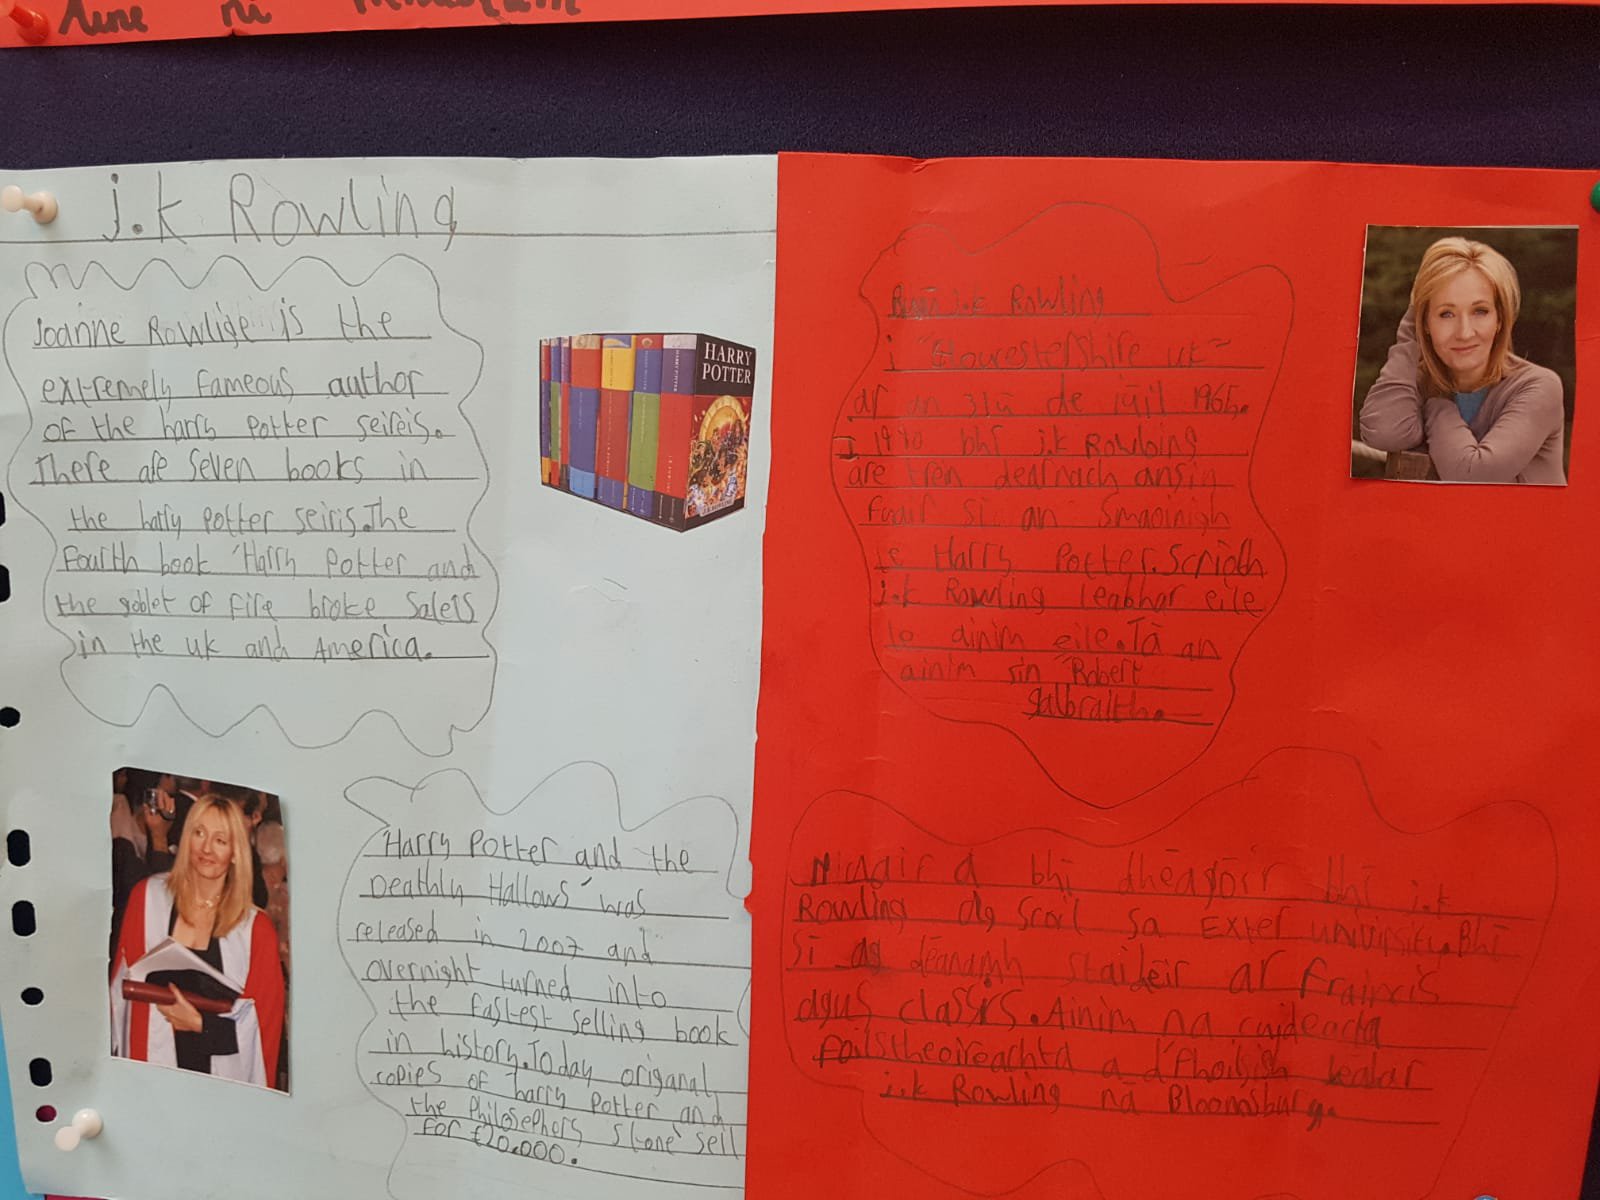 Áine ní
j.k Rowling
Joanne Rowlige is the
extremely fameous author
of the harry Potter seireis.
There are seven books in
the harry potter seiris.The
Fourth book 'Harry Potter and
the goblet of fire broke saleis
in the uk and America.
HARRY
POTTER
'Harry Potter and the
Deathly Hallows' was
released in 2007 and
overnight turned into
the fastest selling book
in history.Today origanal
copies of harry Potter and
the Philosephers stone' sell
for £20.000.
j.k Rowling
i "Gloucestershire uk"
ar an 31ú de iúil 1965.
I 1990 bhí j.k Rowling
are tren dearnach ansin
fuair sí an smaoinigh
le Harry Potter.Scríobh
j.k Rowling leabhar eile
le ainim eile.Tá an
ainim sin Robert
galbraith.
Nuair a bhí dhéagóir bhí j.k
Rowling ag scoil sa Exter university.Bhí
sí ag déanamh staidéir ar fraincis
agus classics.Ainim na cuideacta
foilsitheoireachta a d'fhoilsigh leabar
j.k Rowling ná Bloomsburg.